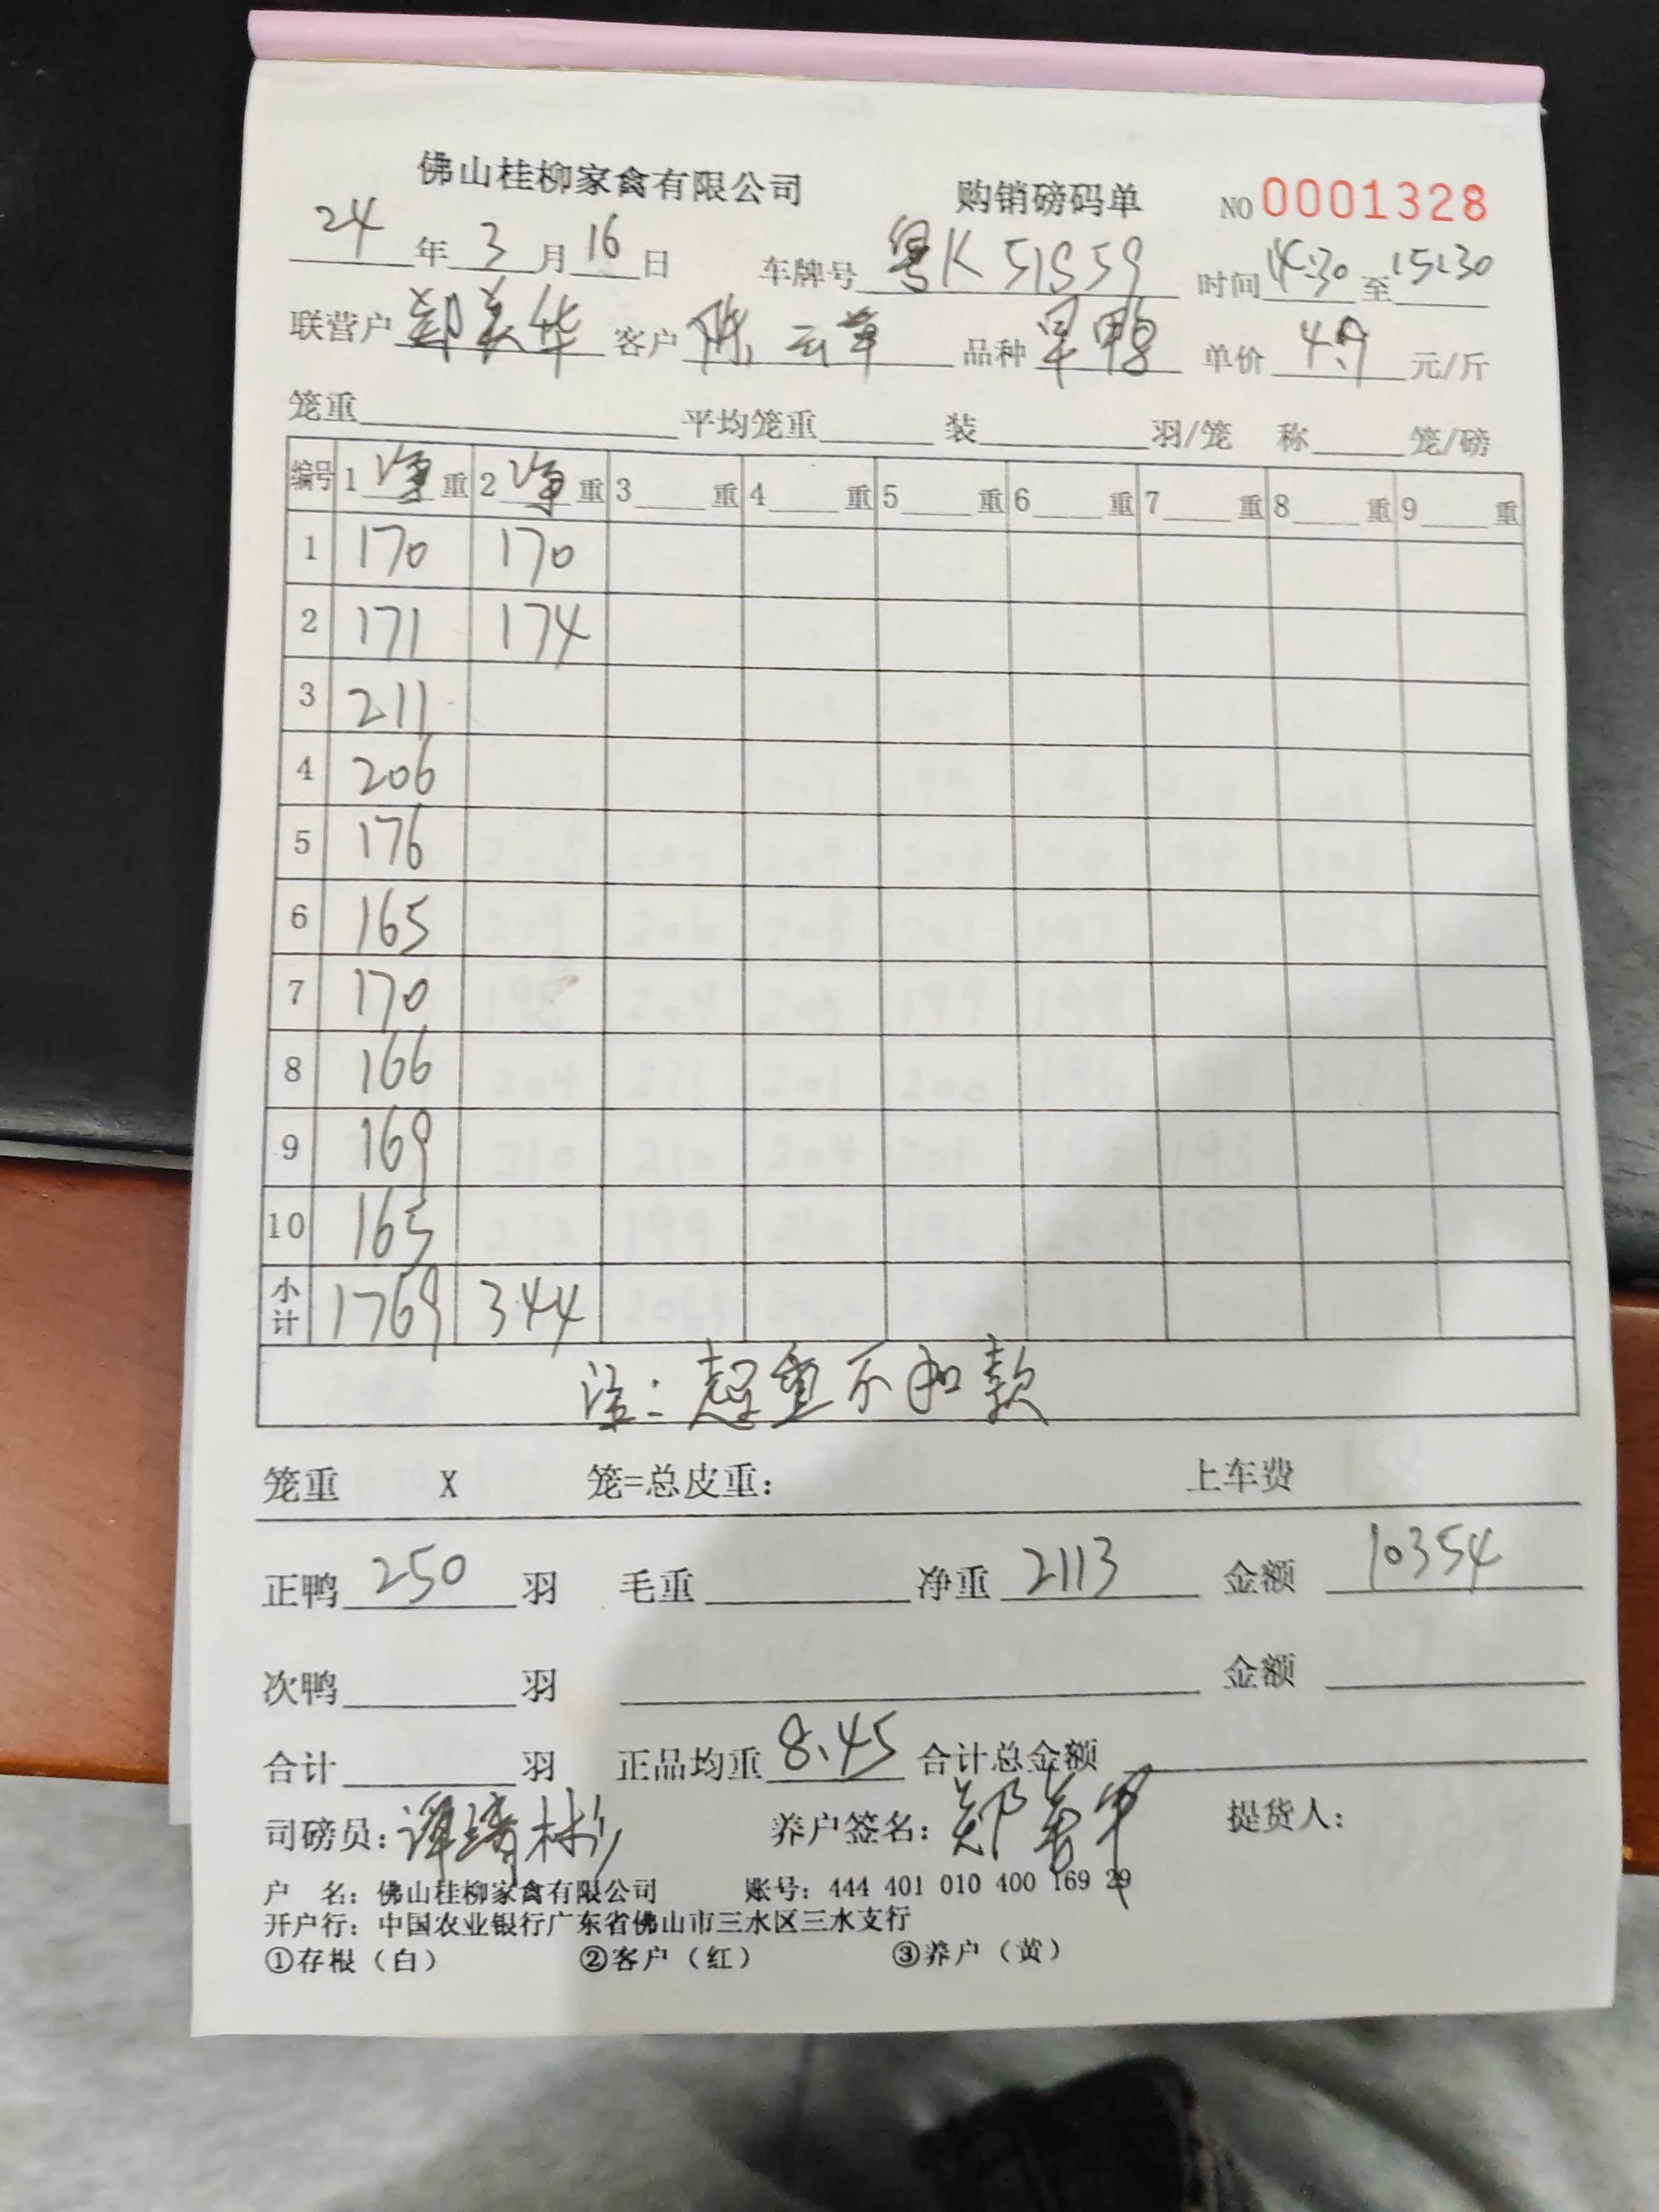 佛山桂柳家禽有限公司 购销磅码单 NO 0001328
24年3月16日 车牌号 粤K51S59 时间 14:30 至 15:30
联营户 郑美华 客户 陈云章 品种 旱鸭 单价 4.9 元/斤
笼重 平均笼重 装 羽/笼 称 笼/磅
编号 1净重 2净重 3 重 4 重 5 重 6 重 7 重 8 重 9 重
1 170 170
2 171 174
3 211
4 206
5 176
6 165
7 170
8 166
9 169
10 165
小计 1769 344
注:超重不扣款
笼重 X 笼=总皮重: 上车费
正鸭 250 羽 毛重 净重 2113 金额 10354
次鸭 羽 金额
合计 羽 正品均重 8.45 合计总金额
司磅员: 养户签名: 提货人:
户 名:佛山桂柳家禽有限公司 账号:444 401 010 400 169 29
开户行:中国农业银行广东省佛山市三水区三水支行
①存根(白) ②客户(红) ③养户(黄)